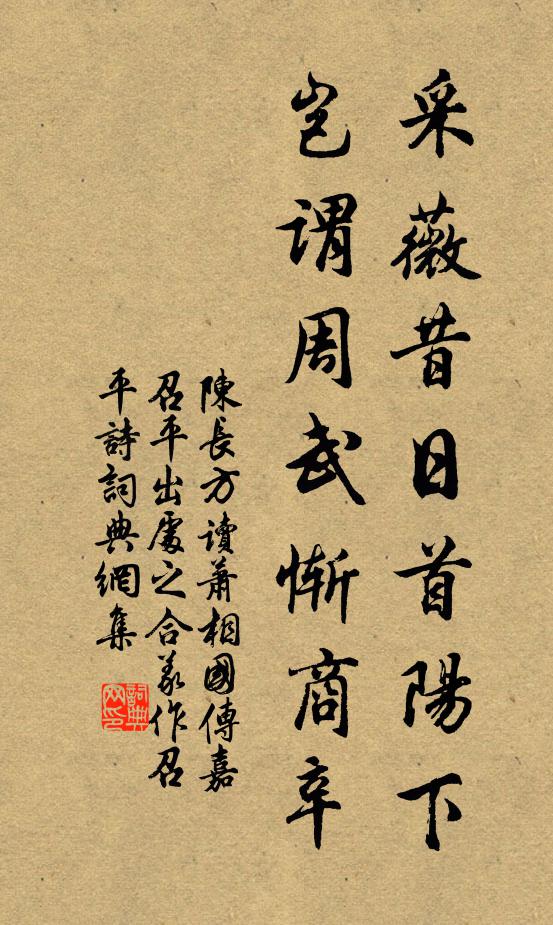 采薇昔日首陽下
豈謂周武慚商辛
陳長方讀蕭相國傳嘉
召平出處之合義作召
平詩詞典網集
詞典
网印